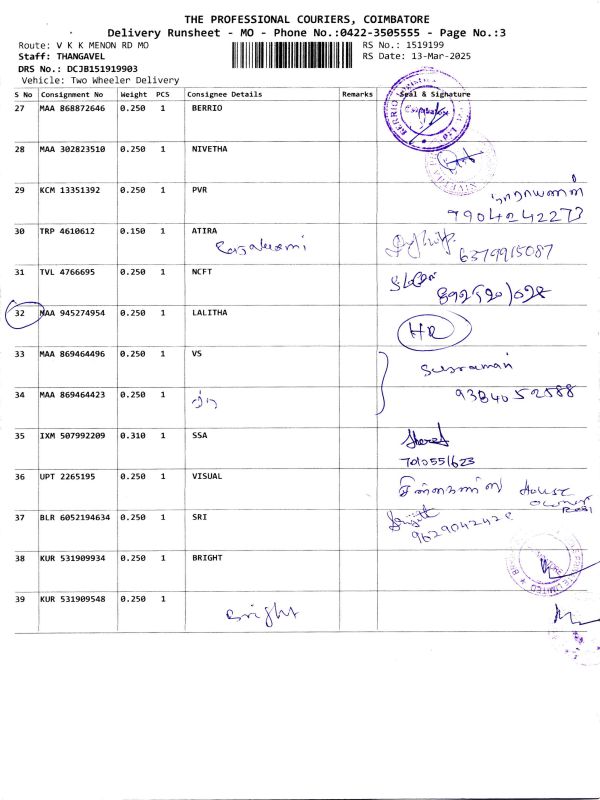 THE PROFESSIONAL COURIERS, COIMBATORE
Delivery Runsheet - MO - Phone No.:0422-3505555 - Page No.:3
Route: V K K MENON RD MO RS No.: 1519199
Staff: THANGAVEL RS Date: 13-Mar-2025
DRS No.: DCJB151919903
Vehicle: Two Wheeler Delivery
S No Consignment No Weight PCS Consignee Details Remarks Seal & Signature
27 MAA 868872646 0.250 1 BERRIO
28 MAA 302823510 0.250 1 NIVETHA
29 KCM 13351392 0.250 1 PVR
நாராயணன்
7904242273
30 TRP 4610612 0.150 1 ATIRA
6379915087
31 TVL 4766695 0.250 1 NCFT
32 MAA 945274954 0.250 1 LALITHA
HR
33 MAA 869464496 0.250 1 VS
34 MAA 869464423 0.250 1
9384052588
35 IXM 507992209 0.310 1 SSA
7010551623
36 UPT 2265195 0.250 1 VISUAL
House
owner
37 BLR 6052194634 0.250 1 SRI
9629042428
38 KUR 531909934 0.250 1 BRIGHT
39 KUR 531909548 0.250 1
Bright